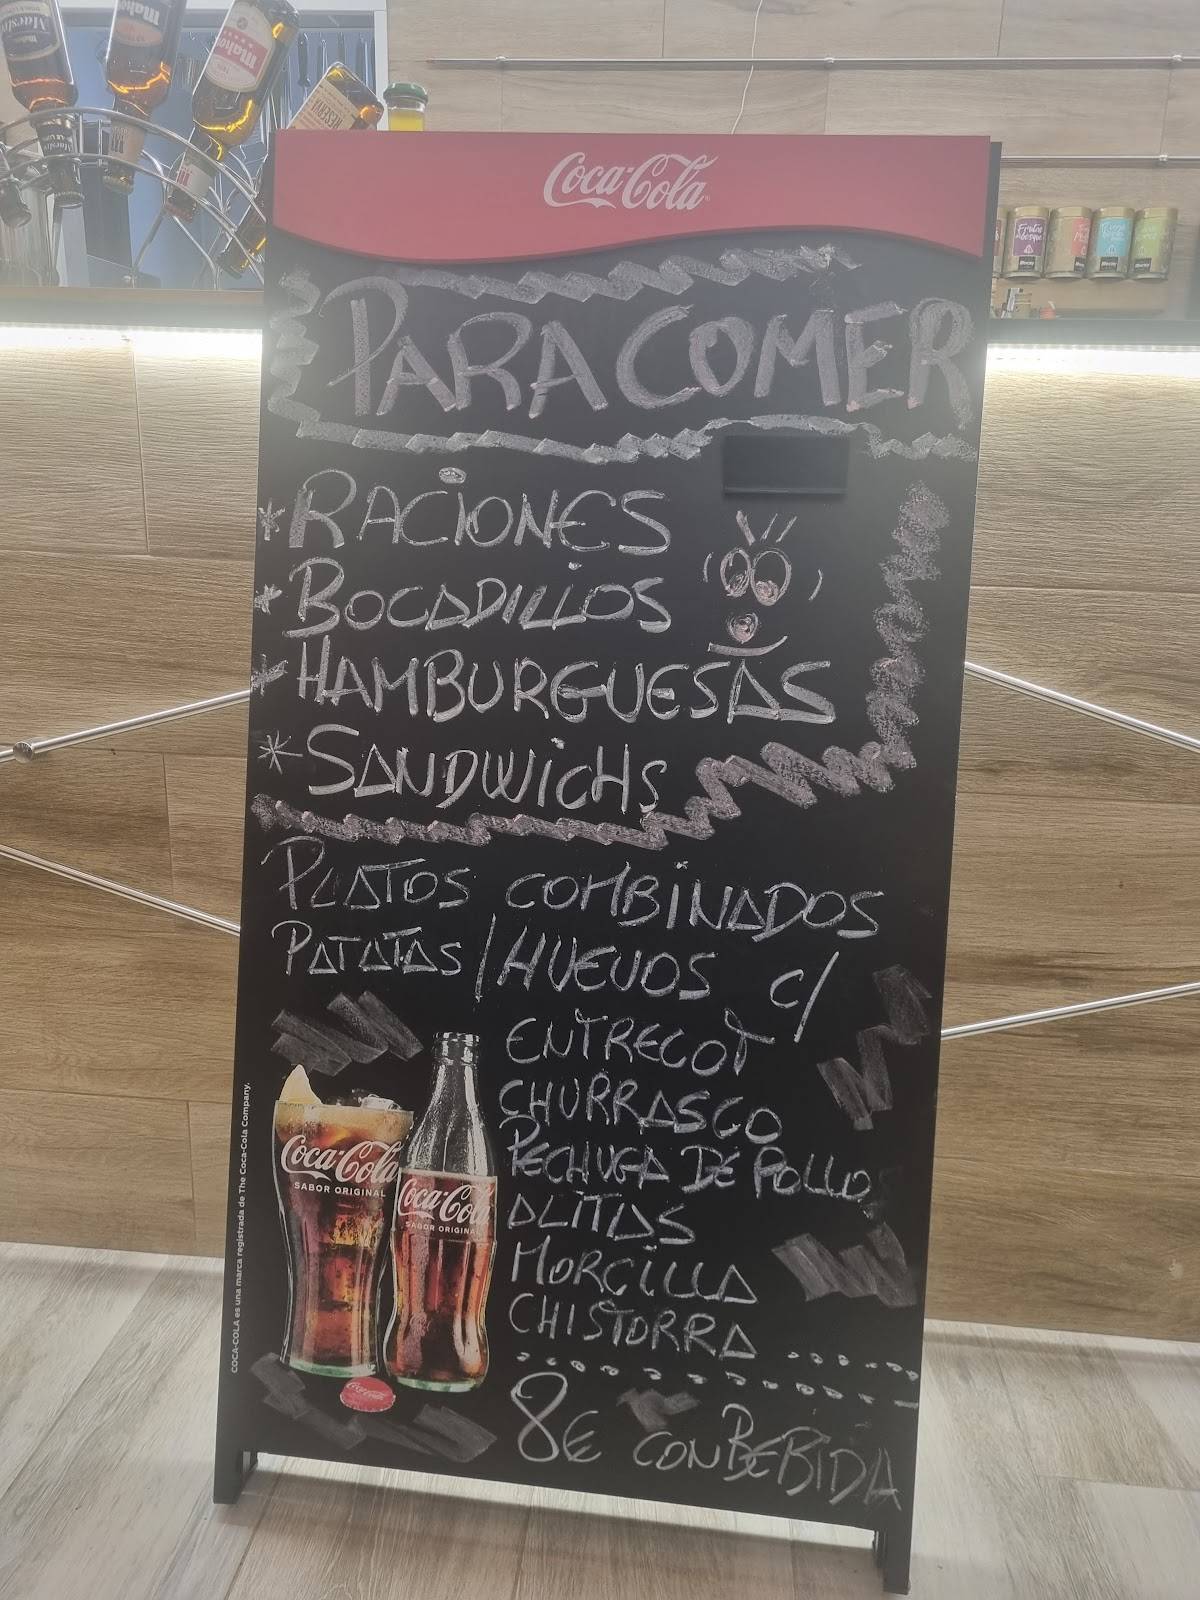 Mahou
Mahou
RESERVA
Coca-Cola
Frutos del bosque
PARA COMER
* RACIONES
* BOCADILLOS
* HAMBURGUESAS
* SANDWICHS
PLATOS COMBINADOS
PATATAS / HUEVOS C/
ENTRECOT
CHURRASCO
PECHUGA DE POLLO
ALITAS
MORCILLA
CHISTORRA
8€ CON BEBIDA
Coca-Cola
SABOR ORIGINAL
Coca-Cola
SABOR ORIGINAL
Coca-Cola
COCA-COLA es una marca registrada de The Coca-Cola Company.